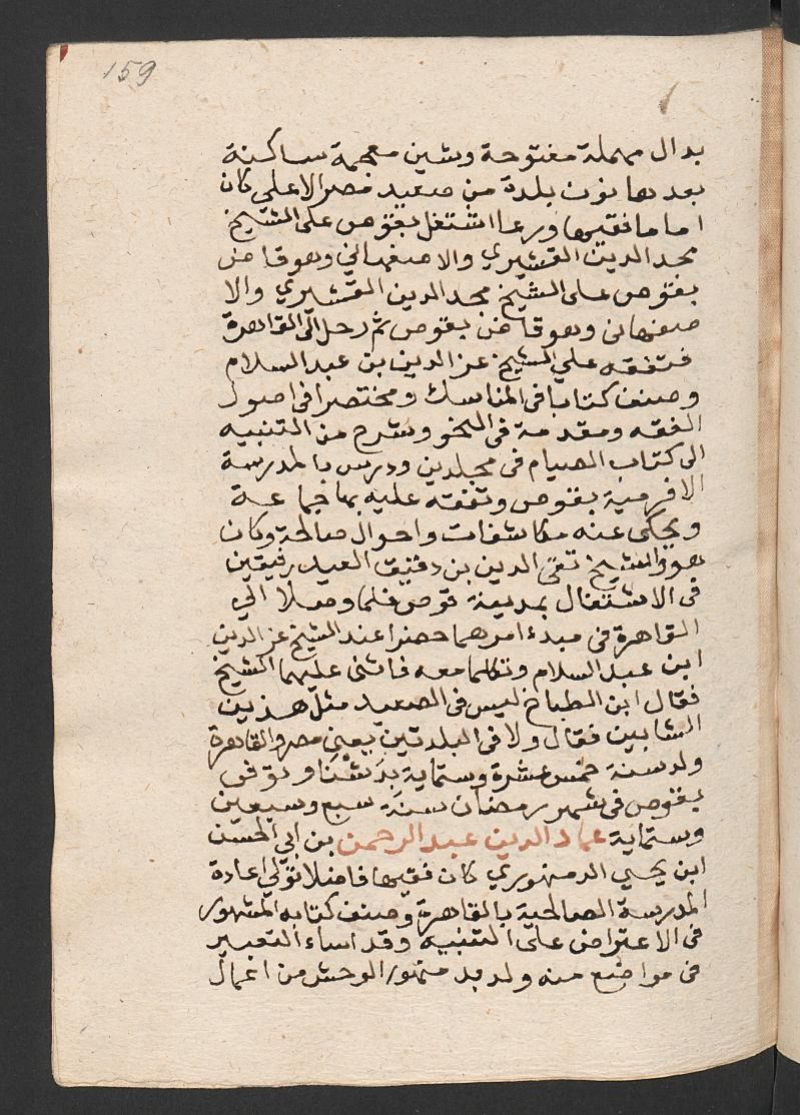 159
بدال مهملة مفتوحة وشين معجمة ساكنة
بعدها نون بلدة من صعيد مصر الاعلي كان
اماما فقيها ورعا اشتغل بقوص على الشيخ
مجد الدين القشيري والاصفهاني وهو قاض
بقوص على الشيخ مجد الدين القشيري والا
صفهاني وهو قاض بقوص ثم رحل الى القاهرة
فتفقه علي الشيخ عز الدين بن عبد السلام
وصنف كتابا في المناسك ومختصرا في اصول
الفقه ومقدمة في النحو وشرح من التنبيه
الى كتاب الصيام في مجلدين ودرس بالمدرسة
الافرمية بقوص وتفقه عليه بها جماعة
ويحكى عنه مكاشفات واحوال صالحة وكان
هو والشيخ تقى الدين بن دقيق العيد رفيقين
في الاشتغال بمدينة قوص فلما وصلا الي
القاهرة في مبدء امرهما حضرا عند الشيخ عز الدين
ابن عبد السلام وتكلما معه فاثنى عليهما الشيخ
فقال ابن الطباخ ليس في الصعيد مثل هذين
الشابين فقال ولا في البلدتين يعني مصر والقاهرة
ولد سنة خمس عشرة وستماية بدَشْنَا وتوفى
بقوص في شهر رمضان سنة سبع وسبعين
وستماية عماد الدين عبد الرحمن بن ابي الحسن
ابن يحيي الدمنهوري كان فقيها فاضلا تولي اعادة
المدرسة الصالحية بالقاهرة وصنف كتابه المشهور
في الاعتراض على التنبيه وقد اساء التعبير
في مواضع منه ولد بد منهور الوحش من اعمال